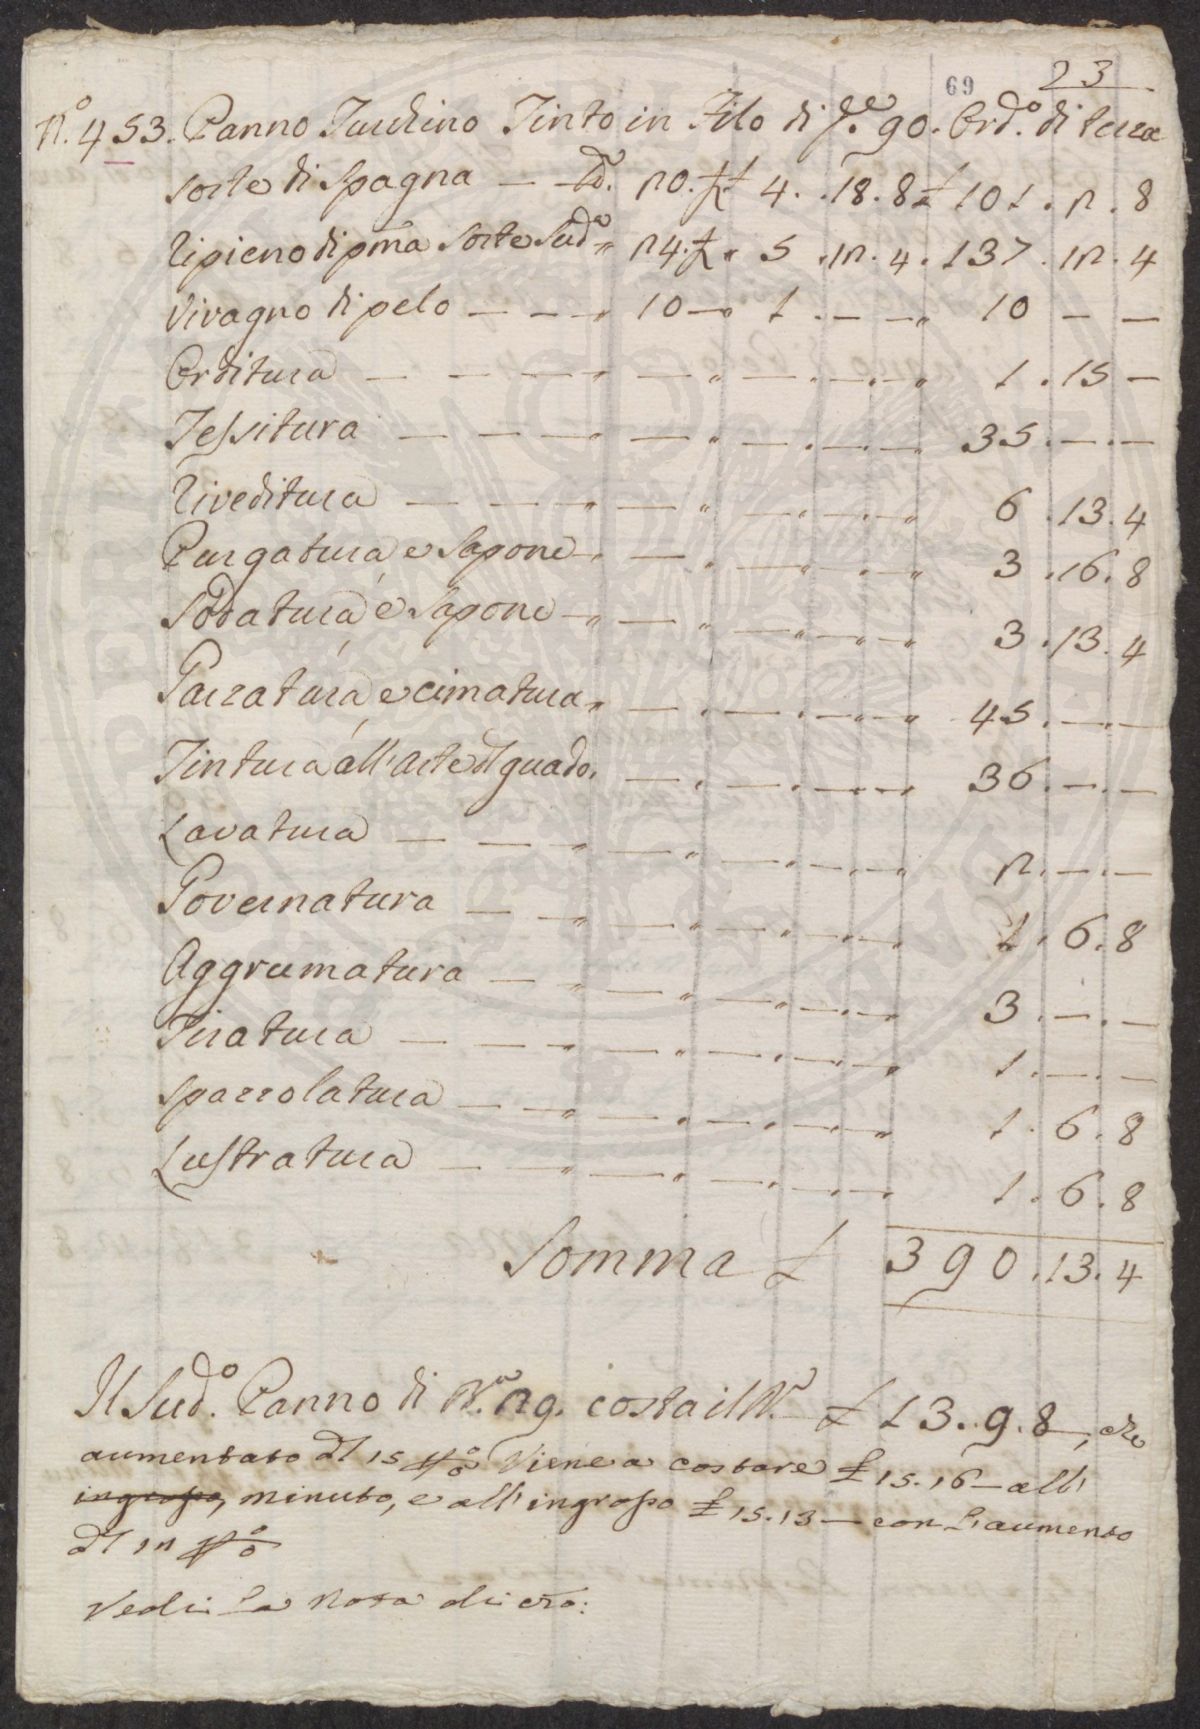 69
23
N.º 453. Panno Turchino Tinto in Filo di P.e 90. Ord.º di terza
sorte di Spagna — — Lb. 20.½ £ 4. . 18. 8 £ 101. 2. 8
Ripieno di pma Sorte Sud.a " 24.½ " 5 . 12. 4 . 137. 12. 4
Vivagno di pelo — — — " 10 — " 1. — — " 10 — —
Orditura — — — — " — " — . — . — " 1. 15 —
Tessitura — — — " — " — . — . — " 35. — . —
Riveditura — — — " — " — " — . — " 6. 13. 4
Purgatura e Sapone — " — " — " — . — " 3. 16. 8
Sodatura e Sapone — " — " — " — . — " 3. 13. 4
Garzatura e cimatura " — . — . — . — " 45. — . —
Tintura all'Arte del guado. — . — . — . — 36. — . —
Lavatura — — — " — " — " — . — " 2. — . —
Governatura — — " — " — " — . — " 1. 6. 8
Aggrumatura — — " — " — " — . — " 3. — . —
Tiratura — — — " — " — . — . — " 1. — . —
Spazzolatura — — " — . — . — . — " 1. 6. 8
Lustratura — — " — . — . — . — " 1. 6. 8
Somma £ 390. 13. 4
Il Sud.º Panno di B.a 29. costa il B.º £ 13. 9. 8, che
aumentato del 15 p% Viene a costare £ 15. 16 — all'
ingrosso, minuto, e all'ingrosso £ 15. 13 — con l'aumento
del 12 p%
Vedi la Nota di cro: